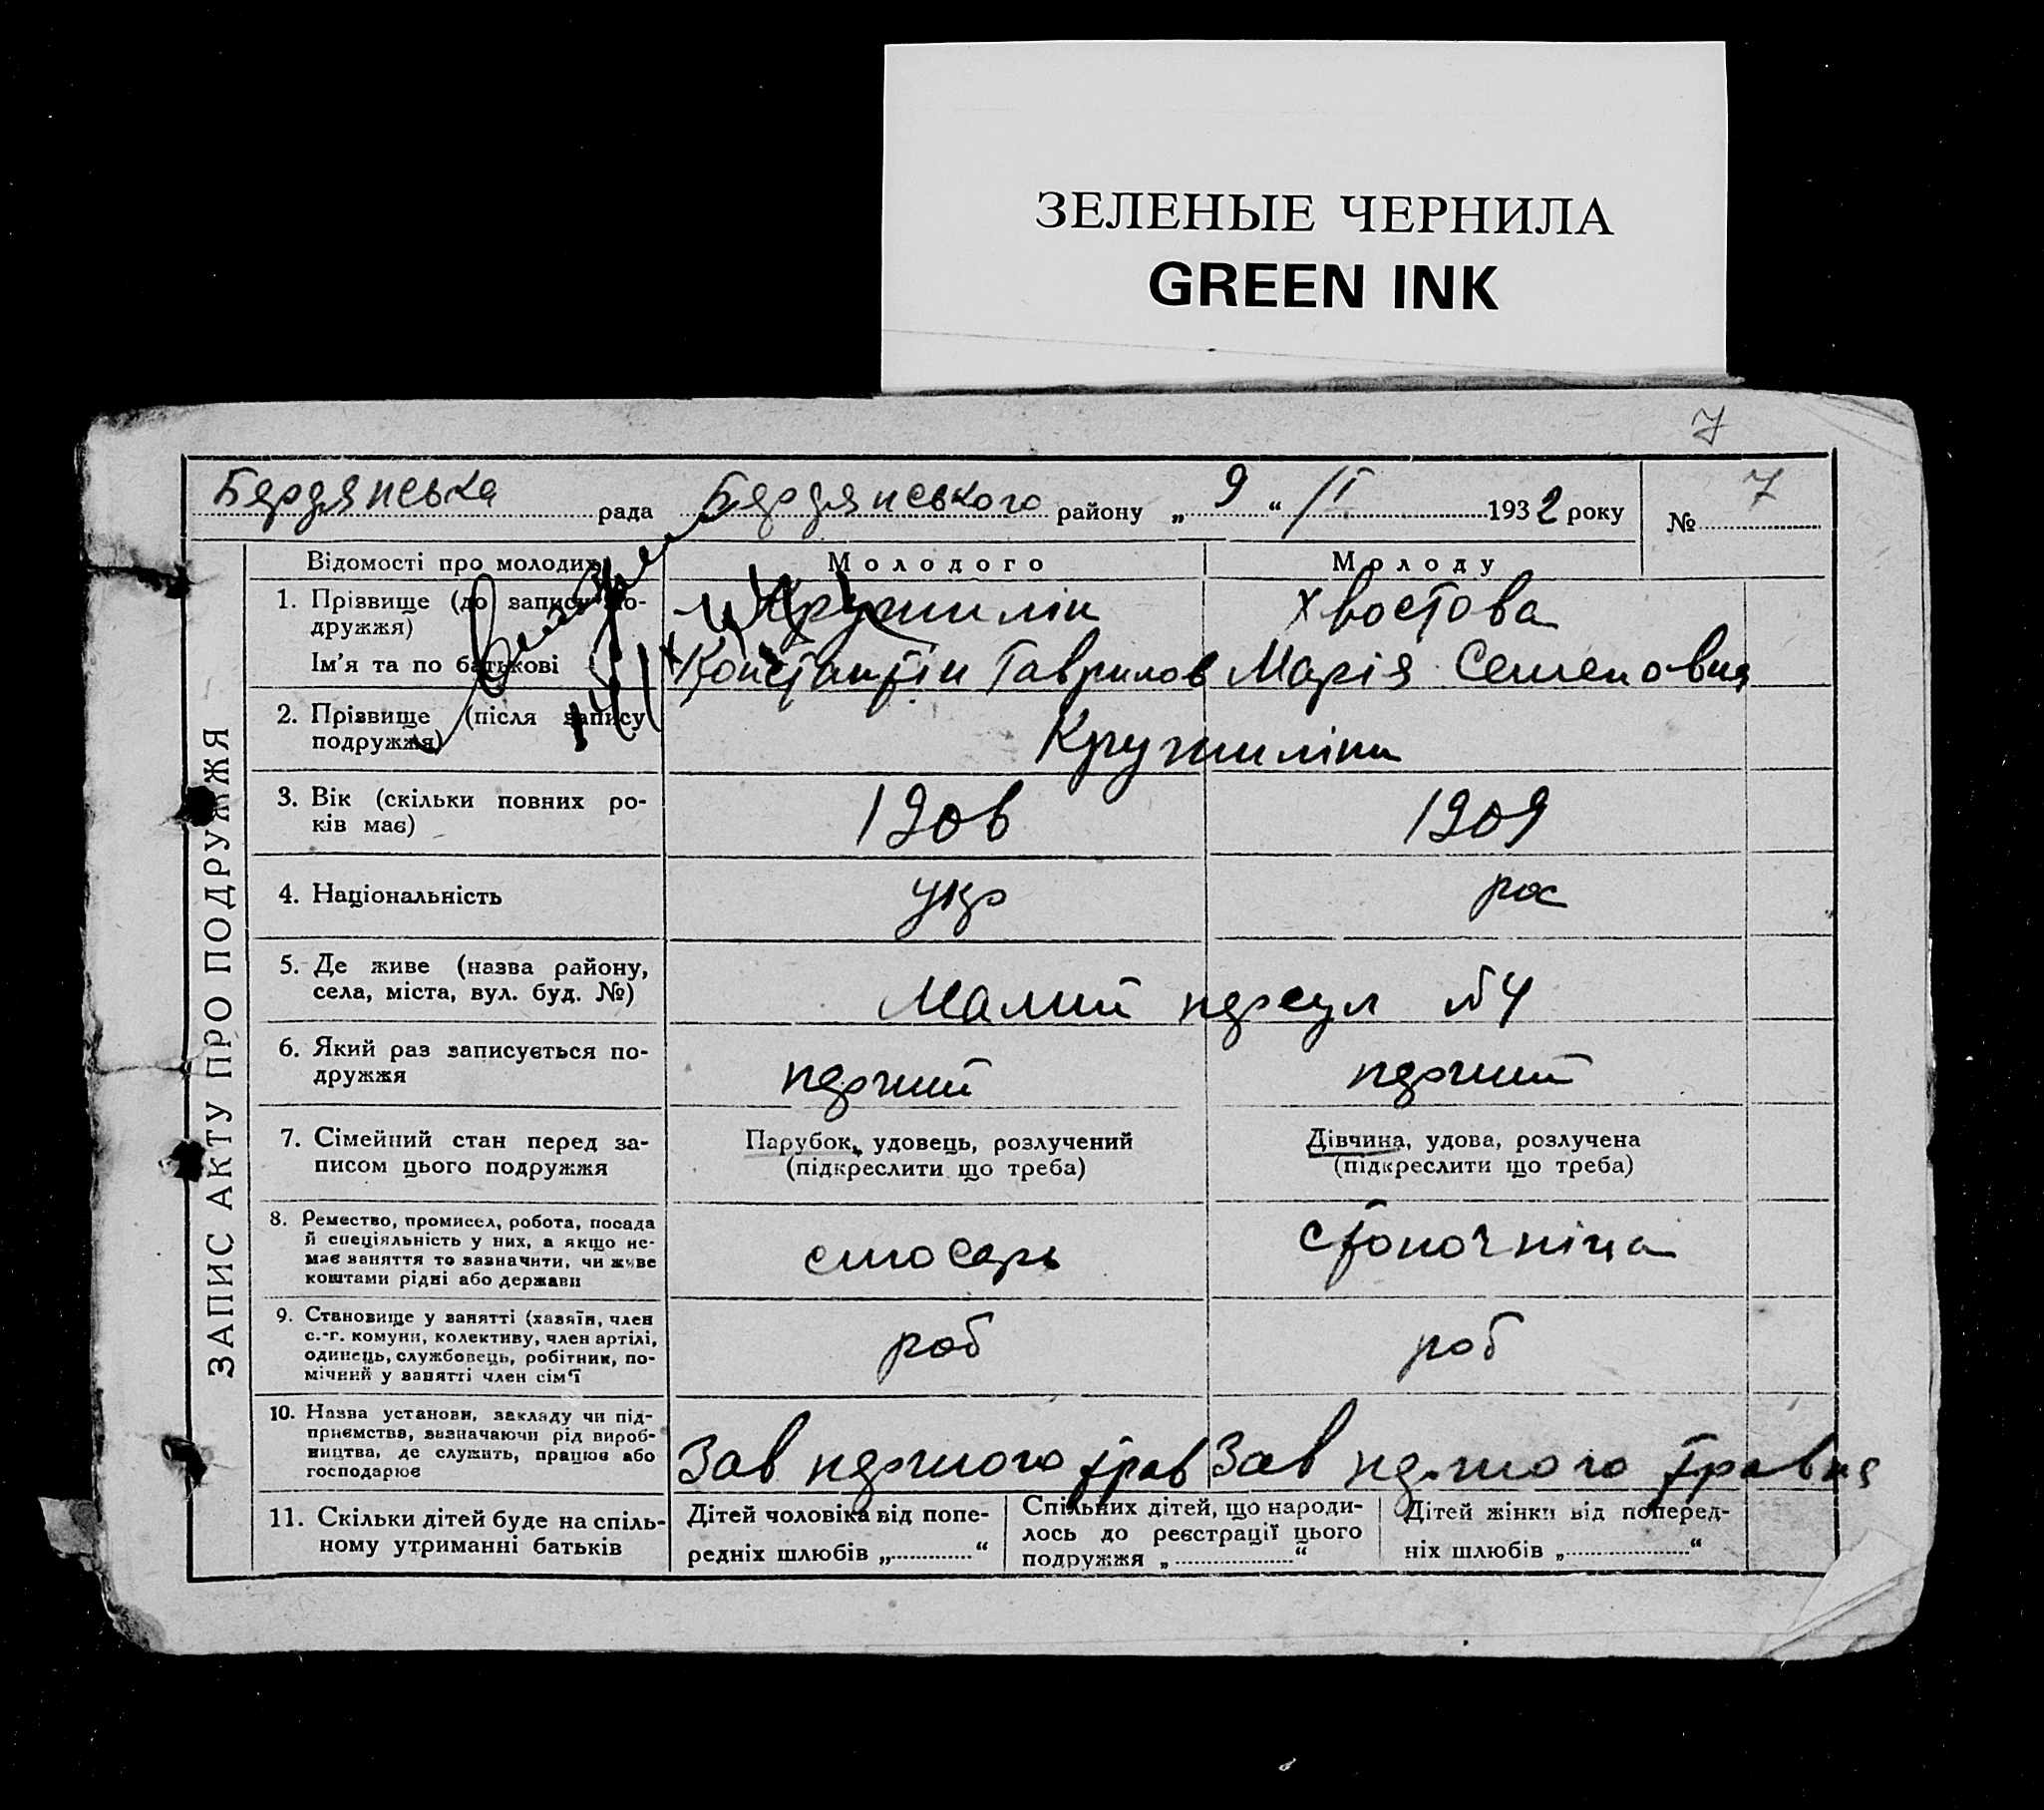 ЗЕЛЕНЫЕ ЧЕРНИЛА
GREEN INK
7
Бердянська рада Бердянського району „ 9 “ /I 1932 року № 7
ЗАПИС АКТУ ПРО ПОДРУЖЖЯ
Відомості про молодих Молодого Молоду
1. Прізвище (до запису по-
дружжя)
Кружилін Хвостова
Ім’я та по батькові Константін Гаврилов Марія Семеновна
2. Прізвище (після запису
подружжя)
Кружиліни
3. Вік (скільки повних ро-
ків має)
1906 1909
4. Національність укр рос
5. Де живе (назва району,
села, міста, вул. буд. №)
Малий переул №4
6. Який раз записується по-
дружжя
перший перший
7. Сімейний стан перед за-
писом цього подружжя
Парубок, удовець, розлучений
(підкреслити що треба)
Дівчина, удова, розлучена
(підкреслити що треба)
8. Ремество, промисел, робота, посада
й спеціяльність у них, а якщо не-
має заняття то зазначити, чи живе
коштами рідні або держави
слюсарь
9. Становище у занятті (хазяїн, член
с.-г. комуни, колективу, член артілі,
одинець, службовець, робітник, по-
мічний у занятті член сім’ї
роб роб
10. Назва установи, закладу чи під-
приємства, зазначаючи рід вироб-
ництва, де служить, працює або
господарює
Зав першого трав Зав першого травня
11. Скільки дітей буде на спіль-
ному утриманні батьків
Дітей чоловіка від попе-
редніх шлюбів „ “
Спільних дітей, що народи-
лось до реєстрації цього
подружжя „ “
Дітей жінки від поперед-
ніх шлюбів „ “